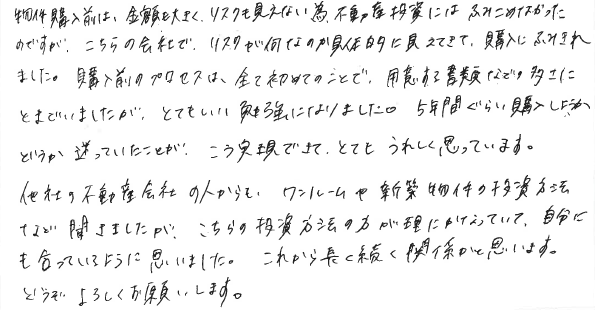 物件購入前は、金額も大きく、リスクも見えない為、不動産投資にはふみこめなかった
のですが、こちらの会社で、リスクが何なのか具体的に見えてきて、購入にふみきれ
ました。購入前のプロセスは、全て初めてのことで、用意する書類などの多さに
とまどいましたが、とてもいい勉強になりました。5年間ぐらい購入しようか
どうか迷っていたことが、こう実現できて、とてもうれしく思っています。
他社の不動産会社の人からも、ワンルームや新築物件の投資方法
など聞きましたが、こちらの投資方法の方が理にかなっていて、自分に
も合っているように思いました。これから長く続く関係かと思います。
どうぞよろしくお願いします。